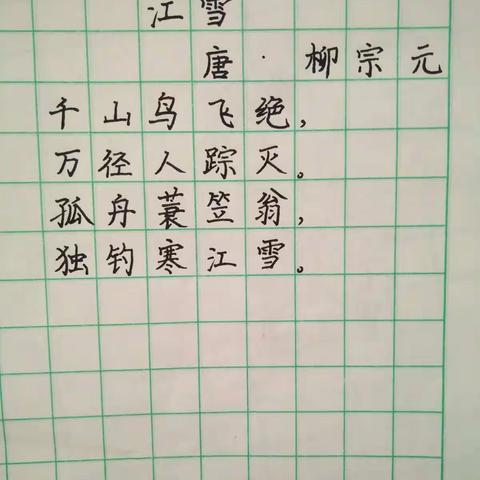 江雪
唐·柳宗元
千山鸟飞绝,
万径人踪灭。
孤舟蓑笠翁,
独钓寒江雪。